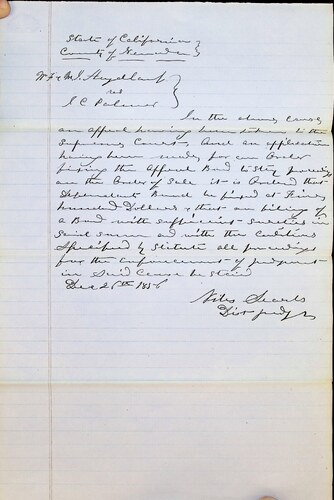 State of California }
County of Nevada }
W. & M. S.
vs }
S C Palmer }
In the above cause
an appeal having been taken to the
Supreme Court And an application
having been made for an Order
fixing the Appeal Bond to Stay proceedings
on the Order of Sale it is Ordered that
Bond be fixed at Five
hundred Dollars & that on filing of
a Bond with sufficient sureties in
said sum and with the conditions
Specified by Statute all proceedings
for the enforcement of judgment
in Said Cause be Stayed
Dec 26th 1856
Niles Searls
Dist Judge